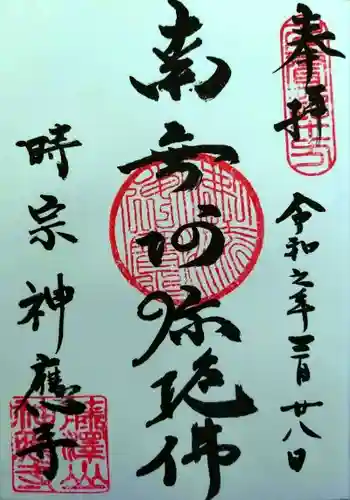 奉拝
令和七年三月廿八日
南無阿弥陀佛
時宗 神應寺